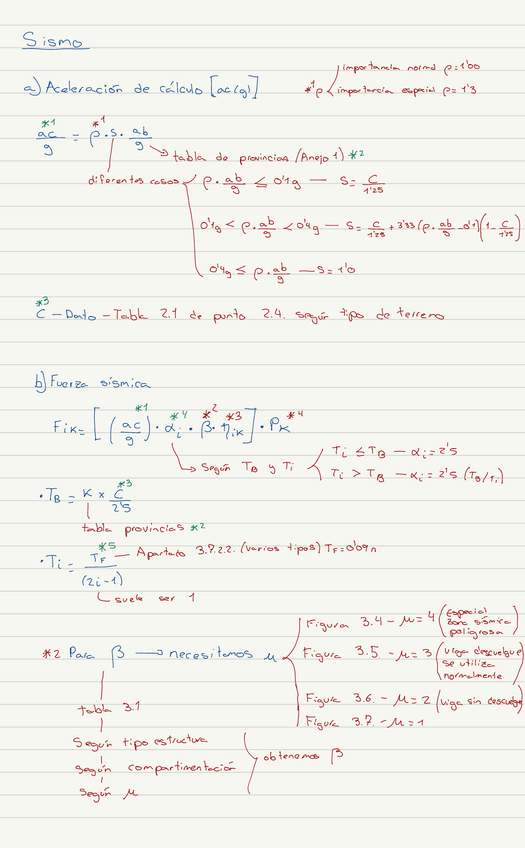 Sismo
a) Aceleración de cálculo [ac/g]
*1 ρ importancia normal ρ=1'00
importancia especial ρ=1'3
*1 ac/g = *1 ρ · s · ab/g
tabla de provincias (Anejo 1) *2
diferentes casos
ρ · ab/g ≤ 0'1g — S = C/1'25
0'1g < ρ · ab/g < 0'4g — S = C/1'25 + 3'33 (ρ · ab/g - 0'1) (1 - C/1'25)
0'4g ≤ ρ · ab/g — S = 1'0
*3 C - Dato - Tabla 2.1 de punto 2.4. según tipo de terreno
b) Fuerza sísmica
Fik = [ (ac/g) *1 · αi *4 · β *2 · ηik *3 ] · Pk *4
Según TB y Ti
Ti ≤ TB — αi = 2'5
Ti > TB — αi = 2'5 (TB/Ti)
· TB = K x C *3 / 2'5
tabla provincias *2
· Ti = TF *5 / (2i-1)
Apartado 3.7.2.2. (varios tipos) TF = 0'09n
suele ser 1
*2 Para β → necesitamos μ
Figura 3.4 - μ = 4 (especial zona sísmica peligrosa)
Figura 3.5 - μ = 3 (viga descuelgue se utiliza normalmente)
Figura 3.6. - μ = 2 (viga sin descuelgue)
Figura 3.7. - μ = 1
tabla 3.1
Según tipo estructura
según compartimentación
según μ
obtenemos β